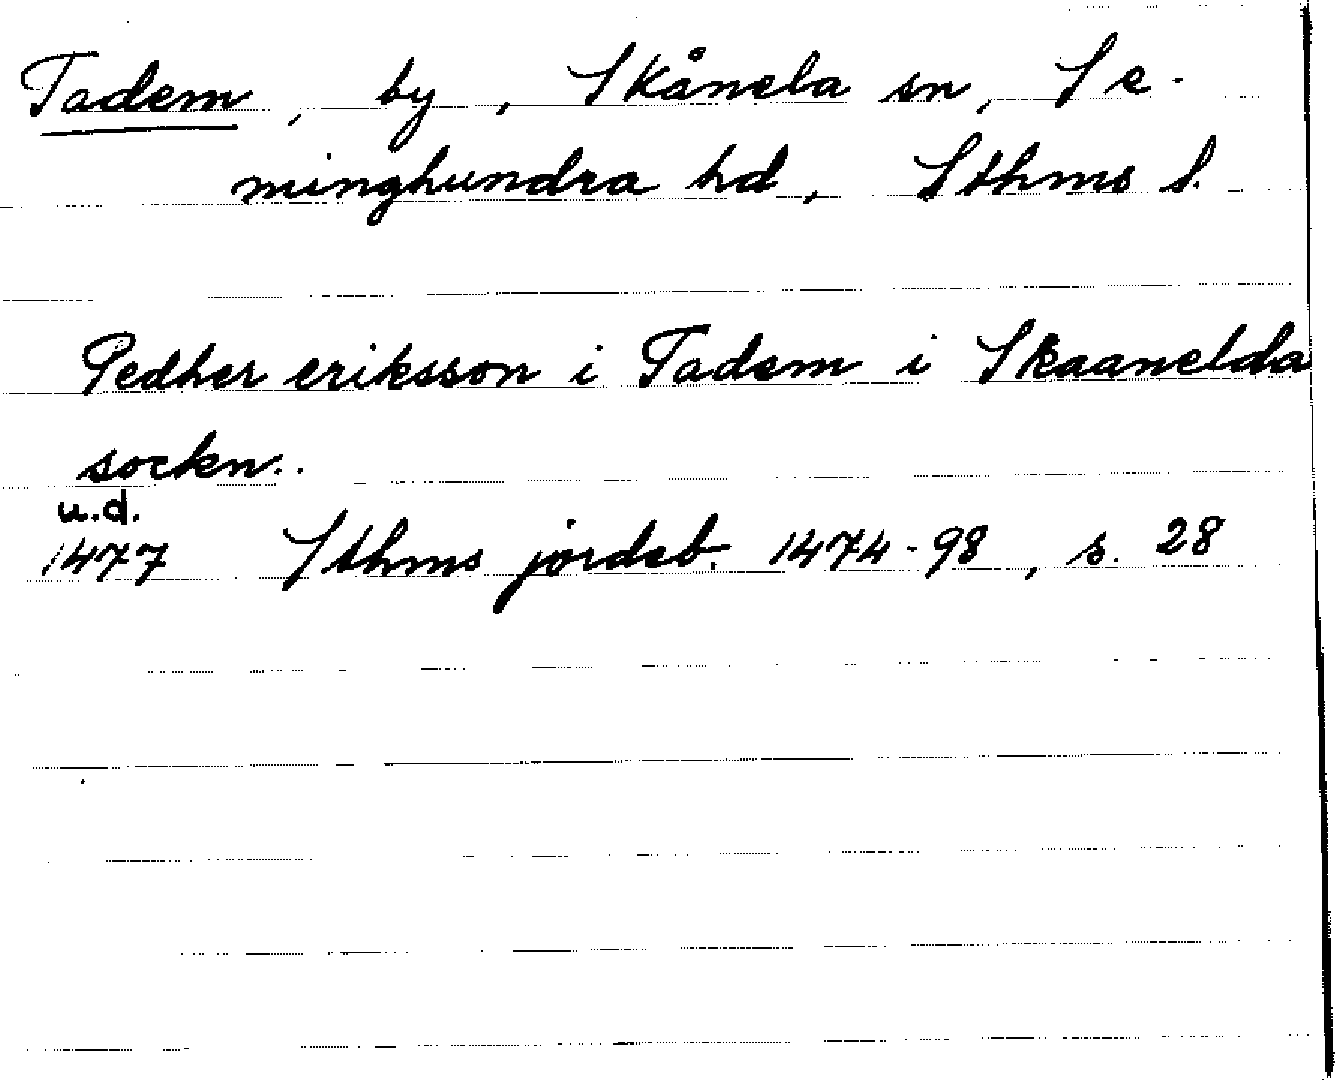 Tadem, by, Skånela sn, Se-
minghundra hd, Sthms l.
Pedher eriksson i Tadem i Skaanelda
sockn..
u.d.
1477 Sthms jordeb. 1474-98, s. 28